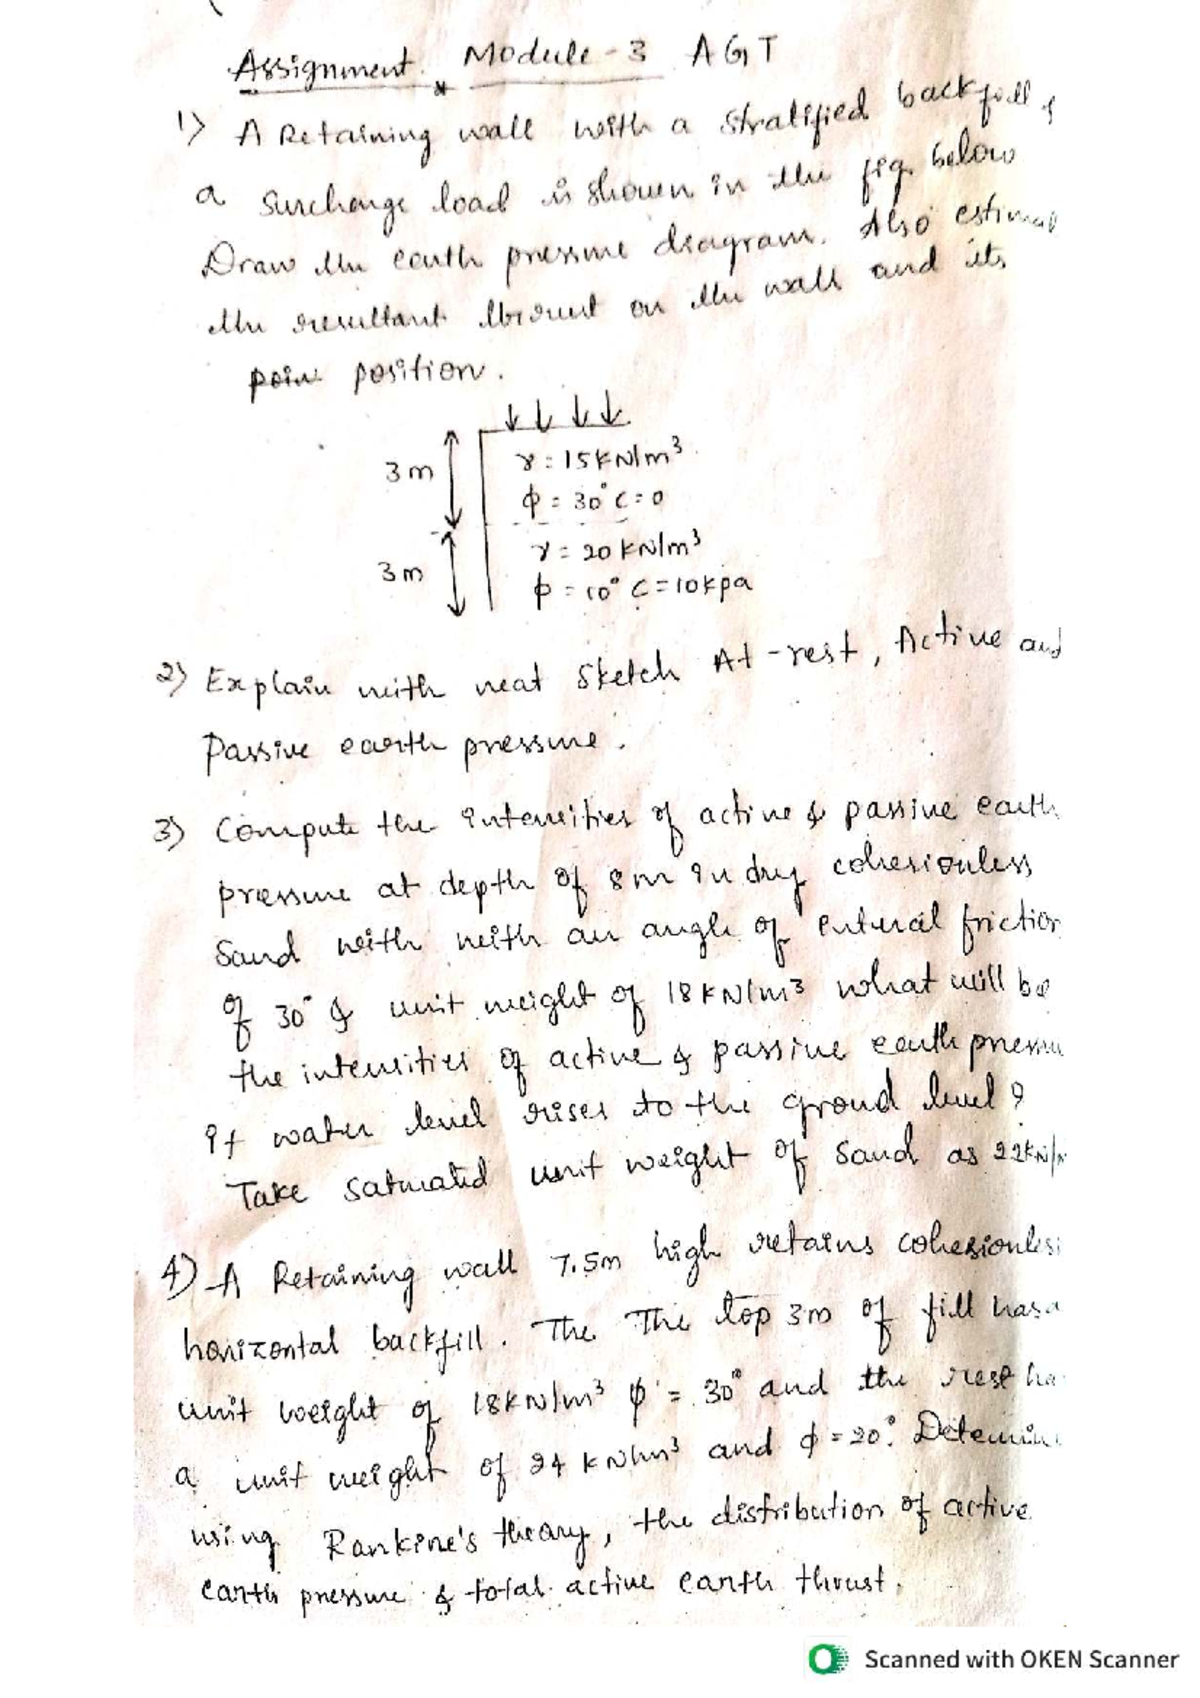 Assignment Module - 3 AGT
1) A Retaining wall with a stratified backfill &
a surcharge load is shown in the fig. below
Draw the earth pressure diagram. Also
the resultant thrust on the wall and its
position.
3m
γ = 15kN/m³
ϕ = 30° C=0
3m
γ = 20 kN/m³
ϕ = 10° C=10kpa
2) Explain with neat sketch At-rest, Active and
Passive earth pressure.
3) Compute the intensities of active & passive earth
pressure at depth of 8m in dry cohesionless
Sand with with an angle of friction
of 30° & unit weight of 18kN/m³ what will be
the intensities of active & passive earth
if water level rises to the ground level?
Take saturated unit weight of Sand as
4) A Retaining wall 7.5m high retains
horizontal backfill. The The top 3m of fill has a
unit weight of 18kN/m³ ϕ' = 30° and the rest
a unit weight of 24 kN/m³ and ϕ = 20°.
using Rankine's theary, the distribution of active
earth pressure & total active earth thrust.
Scanned with OKEN Scanner